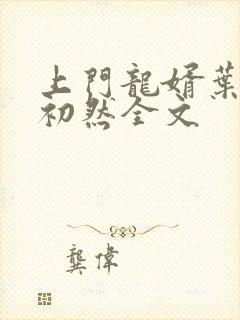 上門龍婿葉
初然全文
龔偉